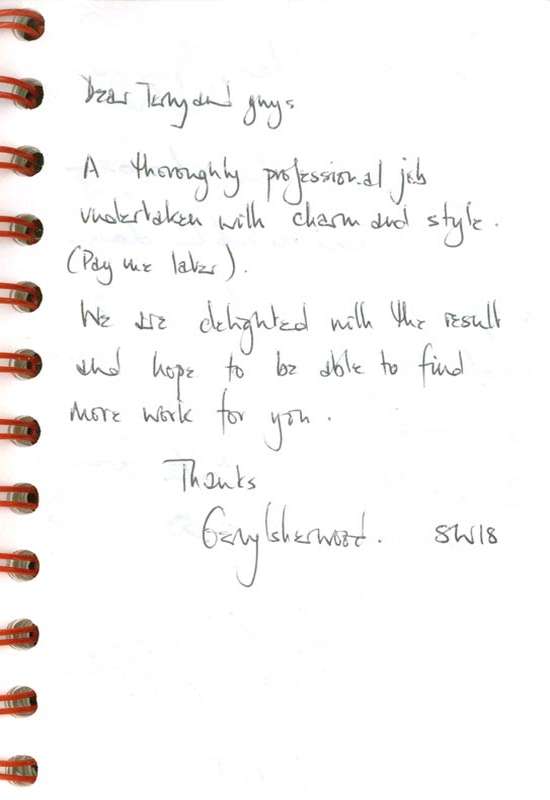 Dear Terry and guys
A thoroughly professional job
undertaken with charm and style.
(Pay me later).
We are delighted with the result
and hope to be able to find
more work for you.
Thanks
Gerry Isherwood. SW18